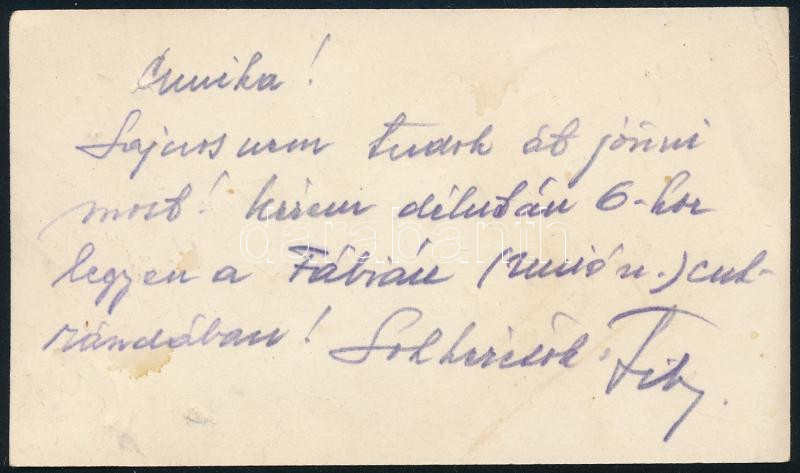 Annika!
Sajnos nem tudok át jönni
most! kérem délután 6-kor
legyen a Fábián (Unió u.) cuk-
rászdában!
darabanth